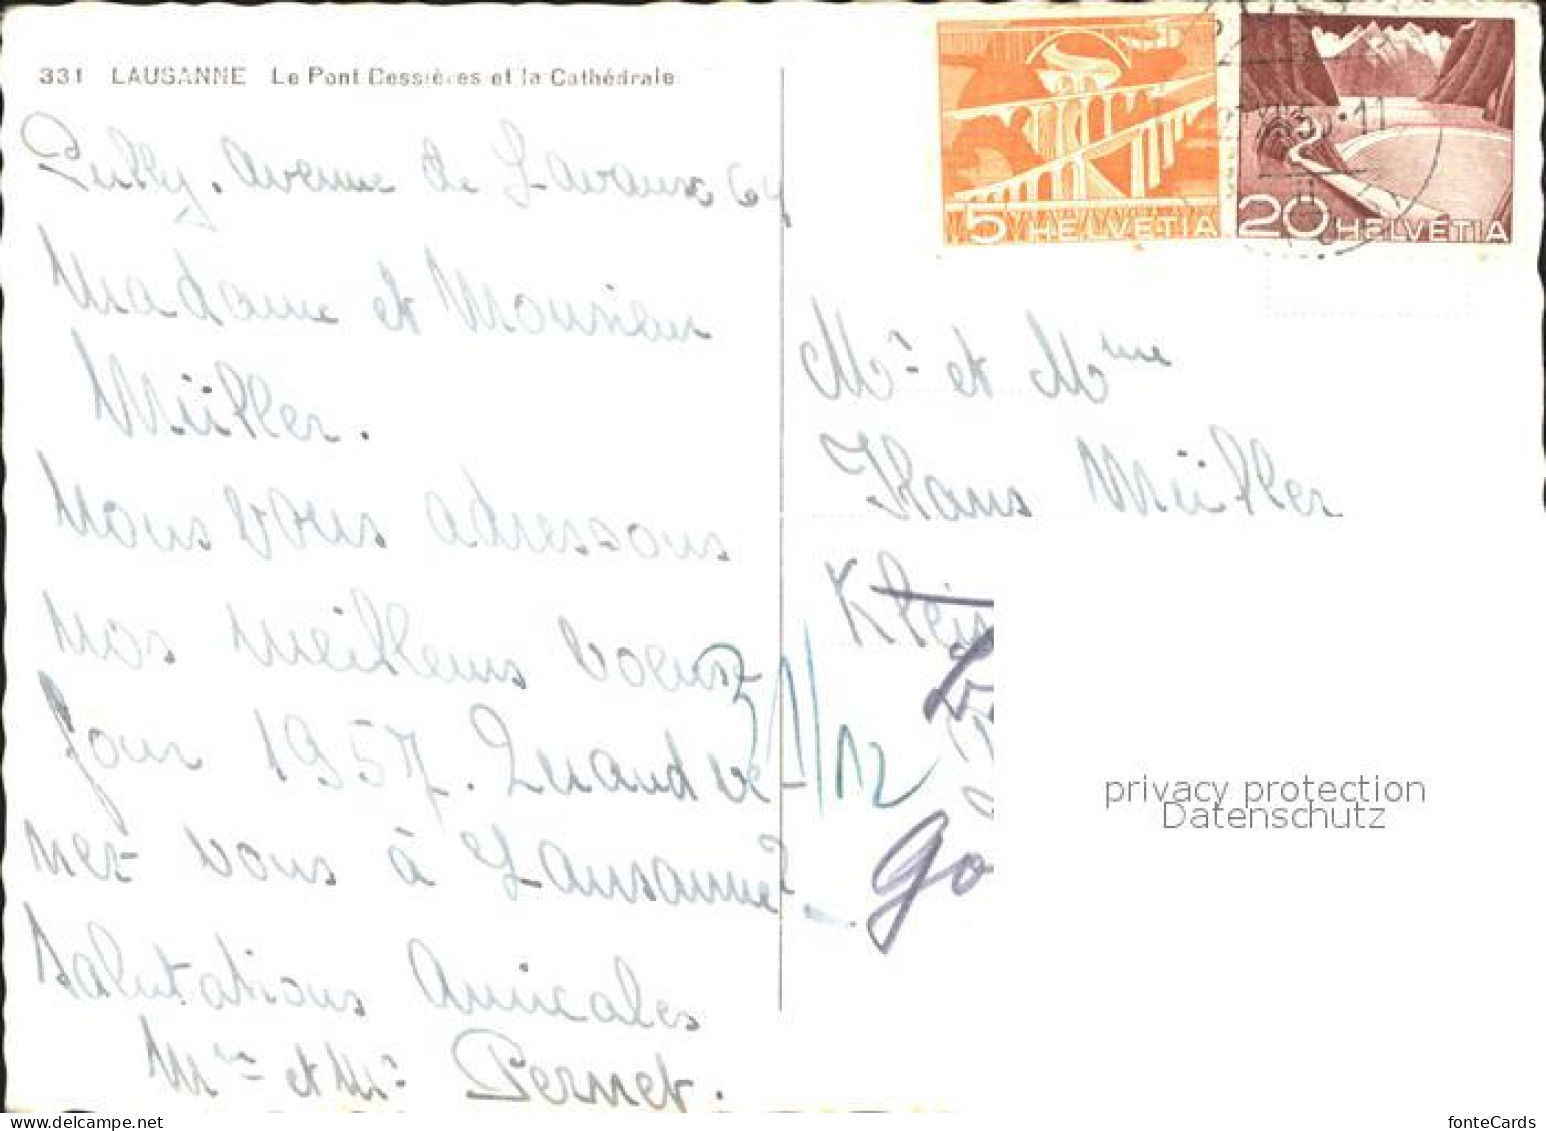 331 LAUSANNE Le Pont Bessières et la Cathédrale
Pully. Avenue de Lavaux 64
Madame et Monsieur
Müller.
Nous vous adressons
nos meilleurs voeux
pour 1957. Quand ve-
nez vous à Lausanne?
Salutations Amicales
Mme et Mr Pernet.
5 HELVETIA
20 HELVETIA
11
Mr et Mme
Hans Müller
Klein
31/12
Go
privacy protection
Datenschutz
fonteCards